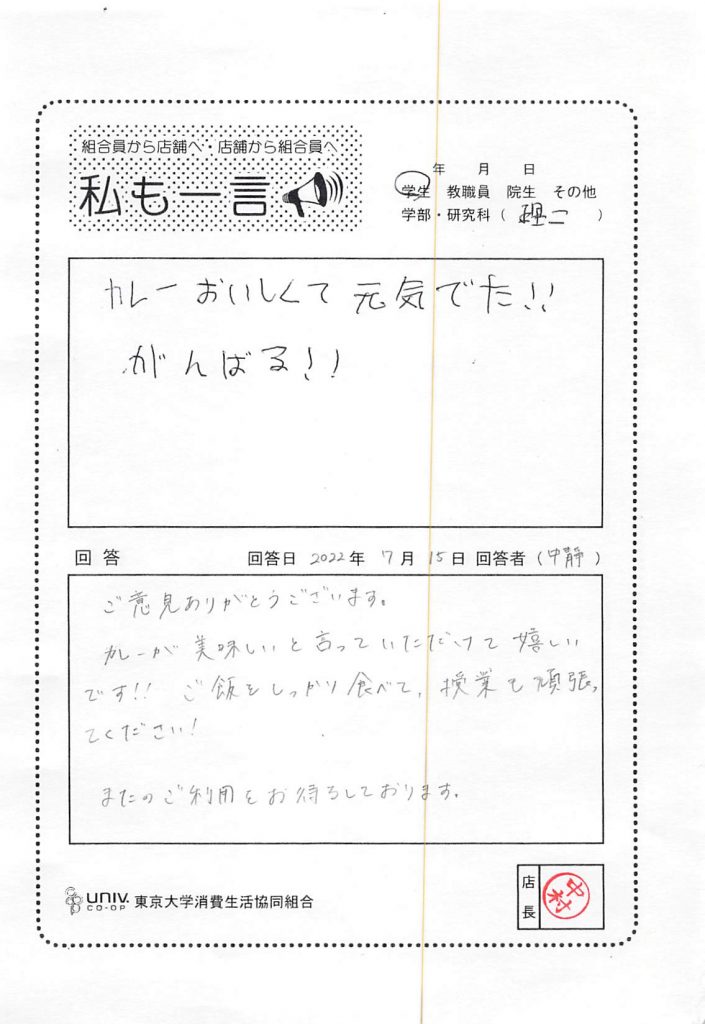 組合員から店舗へ・店舗から組合員へ
私も一言
年 月 日
学生 教職員 院生 その他
学部・研究科（理二）
カレーおいしくて元気でた!!
がんばる!!
回答 回答日 2022年 7月 15日 回答者（中静）
ご意見ありがとうございます。
カレーが美味しいと言っていただけて嬉しい
です!! ご飯をしっかり食べて、授業も頑張っ
てください!
またのご利用をお待ちしております。
UNIV. CO-OP 東京大学消費生活協同組合
店長
中村